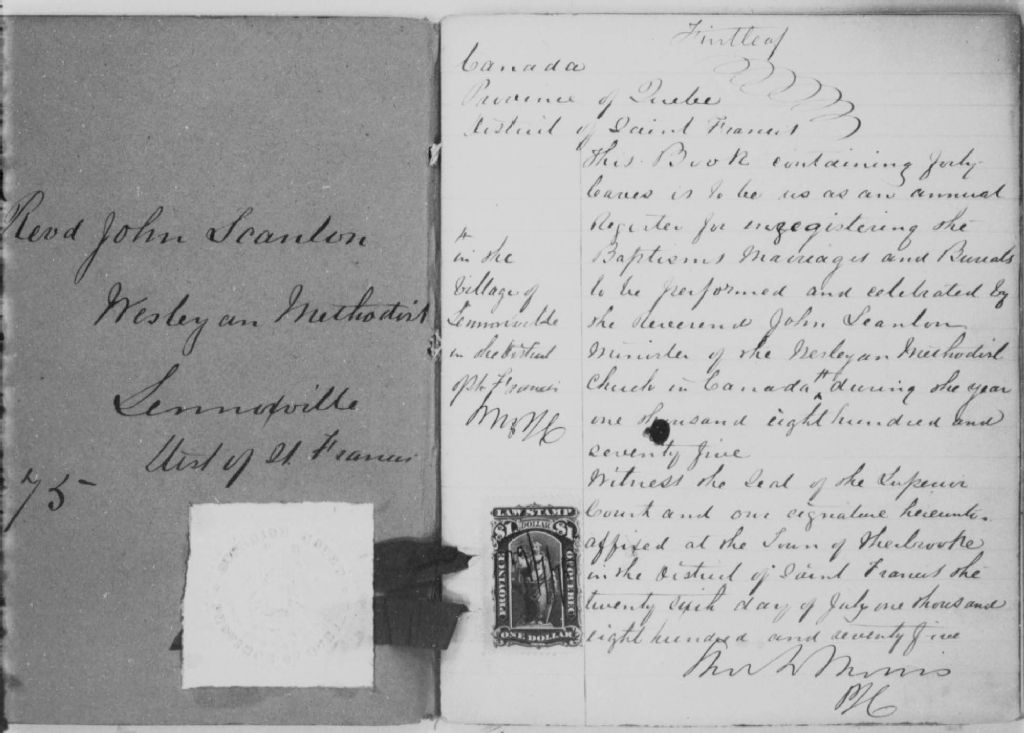 Revd John Scanlon
Wesleyan Methodist
Lennoxville
Dist of St. Francis
75
First leaf
Canada
Province of Quebec
District of Saint Francis
This Book containing forty
leaves is to be us as an annual
Register for enregistering the
Baptisms Marriages and Burials
to be performed and celebrated by
the Reverend John Scanlon
Minister of the Wesleyan Methodist
Church in Canada # during the year
one thousand eight hundred and
seventy five
Witness the Seal of the Superior
Court and our signature hereunto
affixed at the Town of Sherbrooke
in the District of Saint Francis the
twenty sixth day of July one thousand
eight hundred and seventy five
Morris
PSC
# in the
Village of
Lennoxville
in the District
of St. Francis
LAW STAMP
$1 DOLLAR $1
PROVINCE OF QUEBEC
ONE DOLLAR